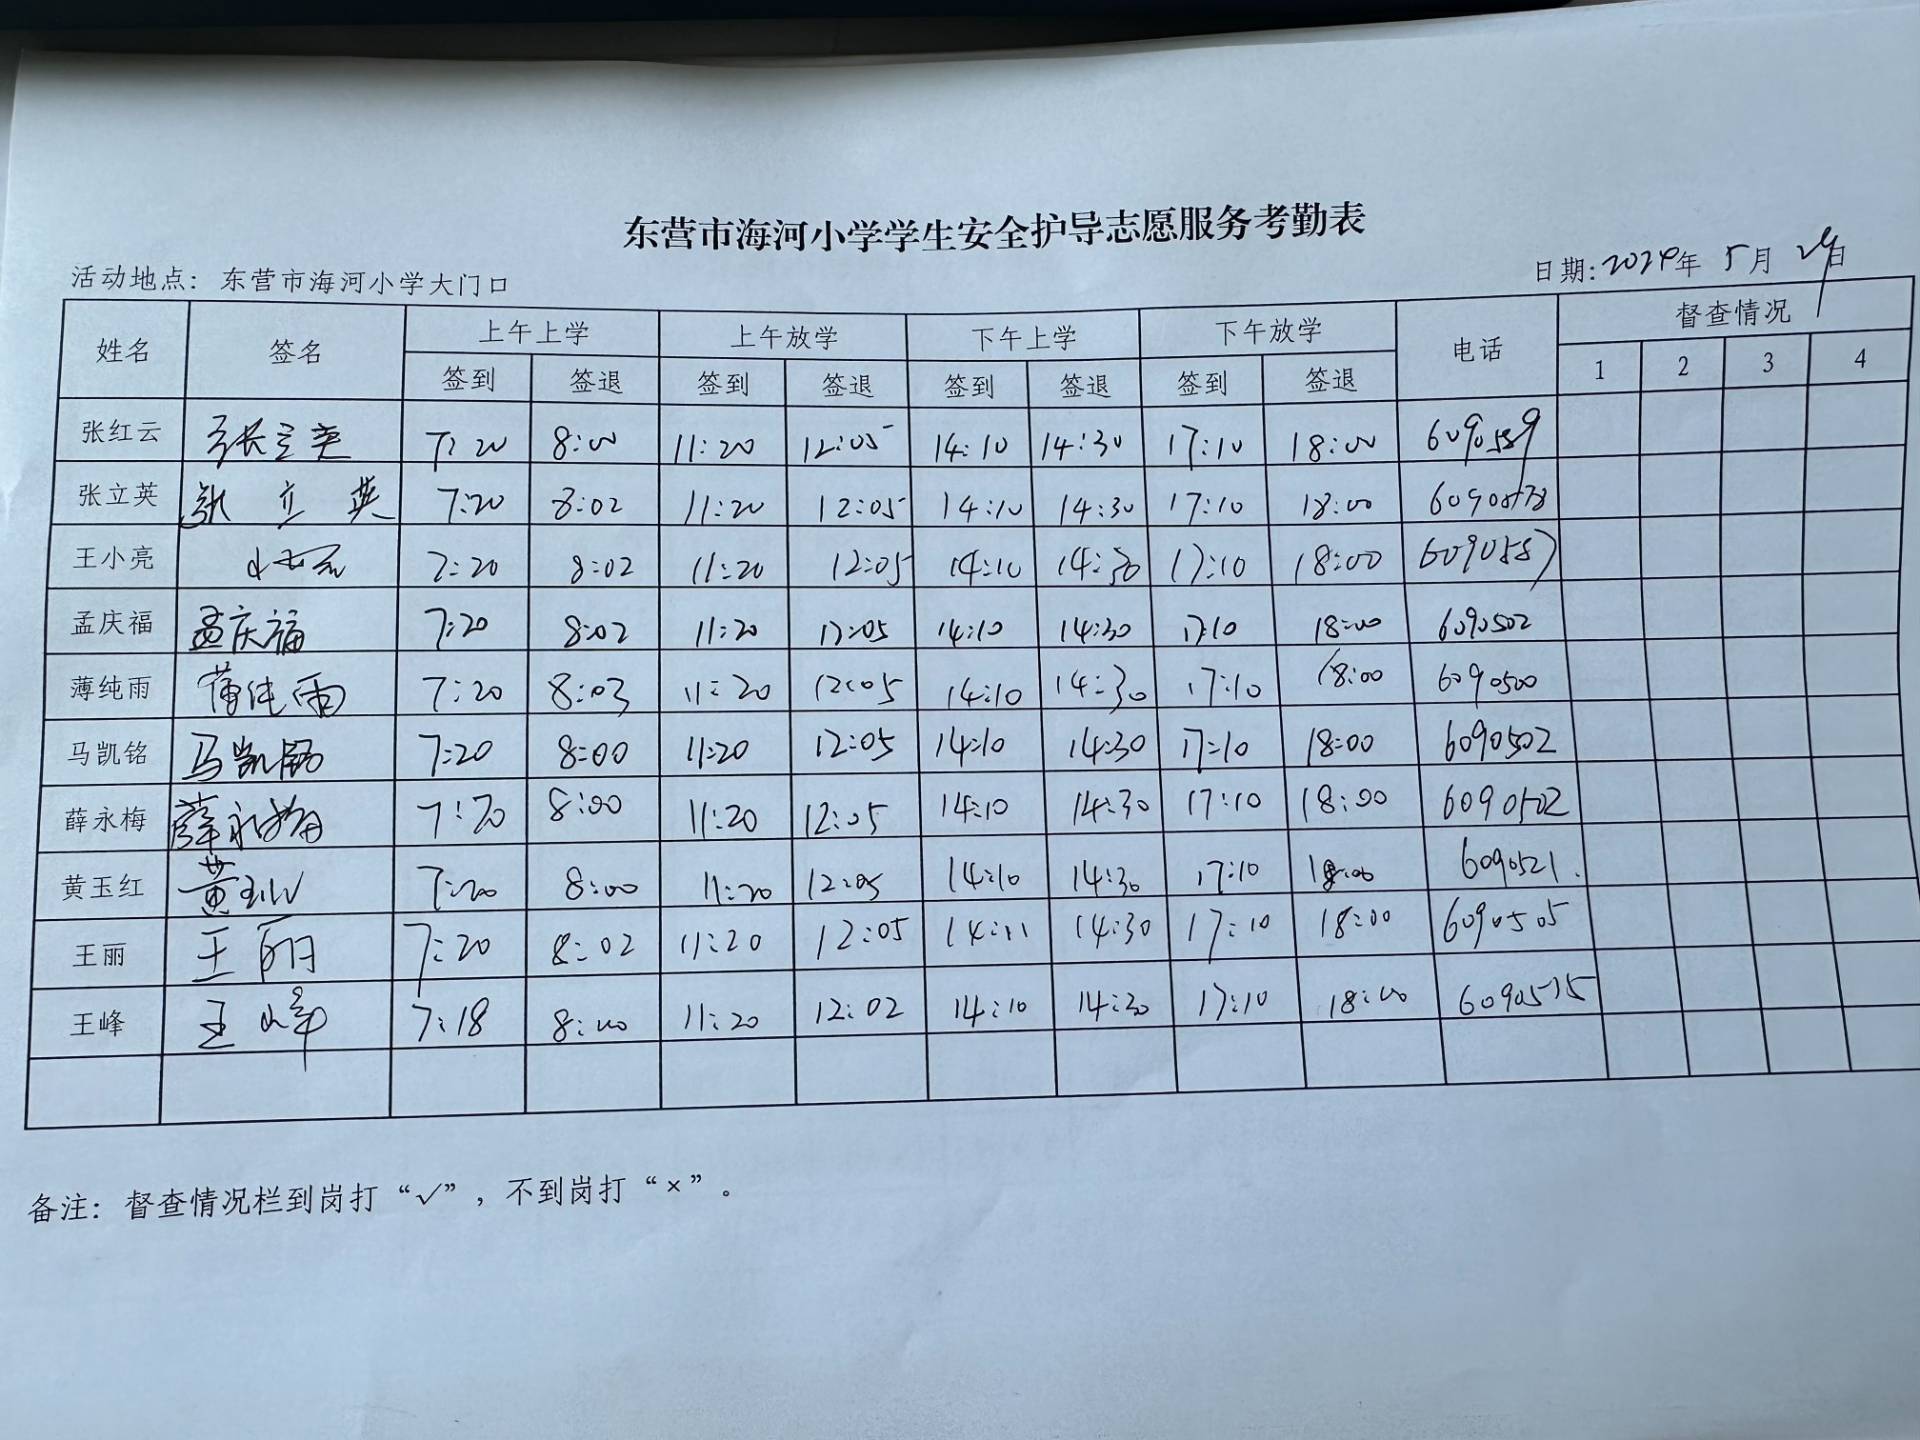 东营市海河小学学生安全护导志愿服务考勤表
活动地点：东营市海河小学大门口 日期：2024年 5月 29日
姓名 签名 上午上学 上午放学 下午上学 下午放学 电话 督查情况
签到 签退 签到 签退 签到 签退 签到 签退 1 2 3 4
张红云 7:20 8:00 11:20 12:05 14:10 14:30 17:10 18:00 6090589
张立英 张立英 7:20 8:02 11:20 12:05 14:10 14:30 17:10 18:00
王小亮 7:20 8:02 11:20 12:05 14:10 14:30 17:10 18:00 6090587
孟庆福 孟庆福 7:20 8:02 11:20 12:05 14:10 14:30 17:10 18:00 6090502
薄纯雨 薄纯雨 7:20 8:03 11:20 12:05 14:10 14:30 17:10 18:00 6090500
马凯铭 马凯铭 7:20 8:00 11:20 12:05 14:10 14:30 17:10 18:00 6090502
薛永梅 薛永梅 7:20 8:00 11:20 12:05 14:10 14:30 17:10 18:00 6090502
黄玉红 黄玉红 7:20 8:00 11:20 12:05 14:10 14:30 17:10 18:00 6090521.
王丽 王丽 7:20 8:02 11:20 12:05 14:11 14:30 17:10 18:00 6090505
王峰 王峰 7:18 8:00 11:20 12:02 14:10 14:30 17:10 18:00 6090515
备注：督查情况栏到岗打“√”，不到岗打“×”。